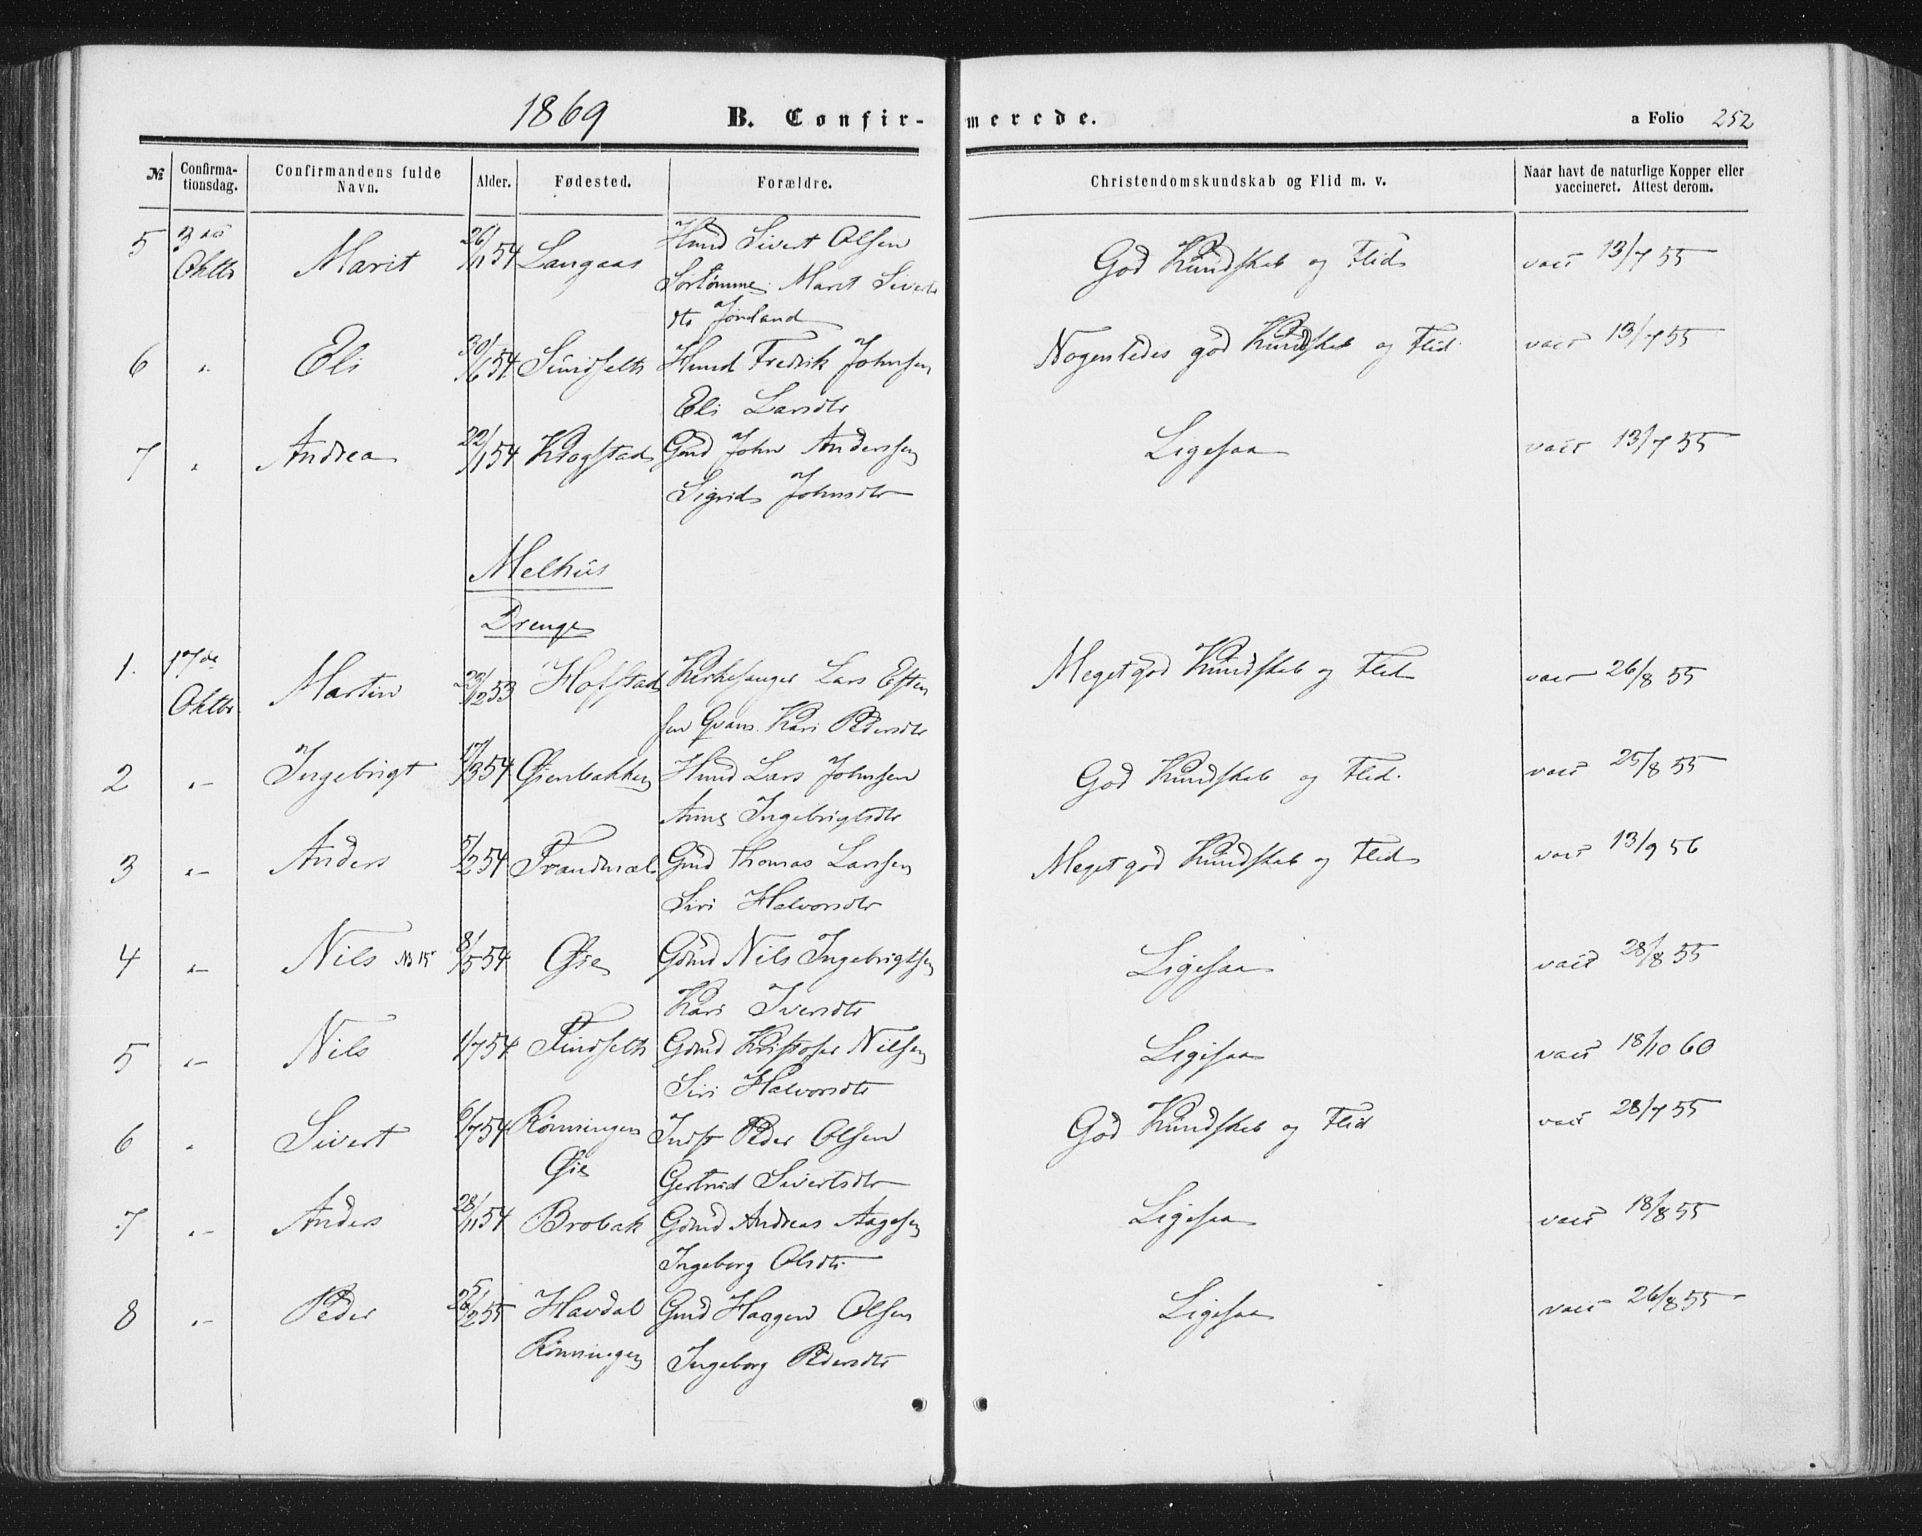 1869 B. Confirmerede. a Folio 252
№ Confirmationsdag. Confirmandens fulde Navn. Alder. Fødested. Forældre. Christendomskundskab og Flid m. v. Naar havt de naturlige Kopper eller vaccineret. Attest derom.
5 3die Oktbr Marit 26/11 54 Langaas Huusmd Sivert Olsen God Kundskab og Flid vacc 13/7 55
Sørtømme. Marit Siverts
dtr Jønland
6 " Eli 30/6 54 Sundseth Huusmd Fredrik Johnsen Nogenledes god Kundskab og Flid vacc 13/7 55
Eli Larsdtr
7 " Andrea 22/1 54 Krogstad Gmd John Anderssen Ligesaa vacc 13/7 55
Sigrid Johnsdtr
Melhus
Drenge
1. 17de Oktbr Martin 23/12 53 Hofstad Kirkesanger Lars Esten Meget god Kundskab og Flid vacc 26/8 55
sen Qvam. Kari Pedersdtr
2 "- Ingebrigt 17/3 54 Øienbakken Hmd Lars Johnsen God Kundskab og Flid. vacc 25/8 55
Anne Ingebrigtsdtr
3 "- Anders 5/2 54 Trandmæl Gmd Thomas Larssen Meget god Kundskab og Flid vacc 13/9 56
Siri Halvorsdtr
4 "- Nils No 15 8/5 54 Øie Gmd Nils Ingebrigtsen Ligesaa vacc 28/8 55
Kari Iversdtr
5 "- Nils 1/7 54 Gmd Kristofer Nilsen Ligesaa vacc 18/10 60
Siri Halvorsdtr
6 " Sivert 6/7 54 Rønningen Indst Peder Olsen God Kundskab og Flid vacc 28/7 55
Øie Gertrud Sivertsdtr
7 "- Anders 28/11 54 Brobak Gmd Andreas Aagesen Ligesaa vacc 18/8 55
Ingeborg Olsdtr
8 "- Peder 5/2 55 Havdal Gmd Haagen Olsen Ligesaa vacc 26/8 55
Rønningen Ingeborg Pedersdtr